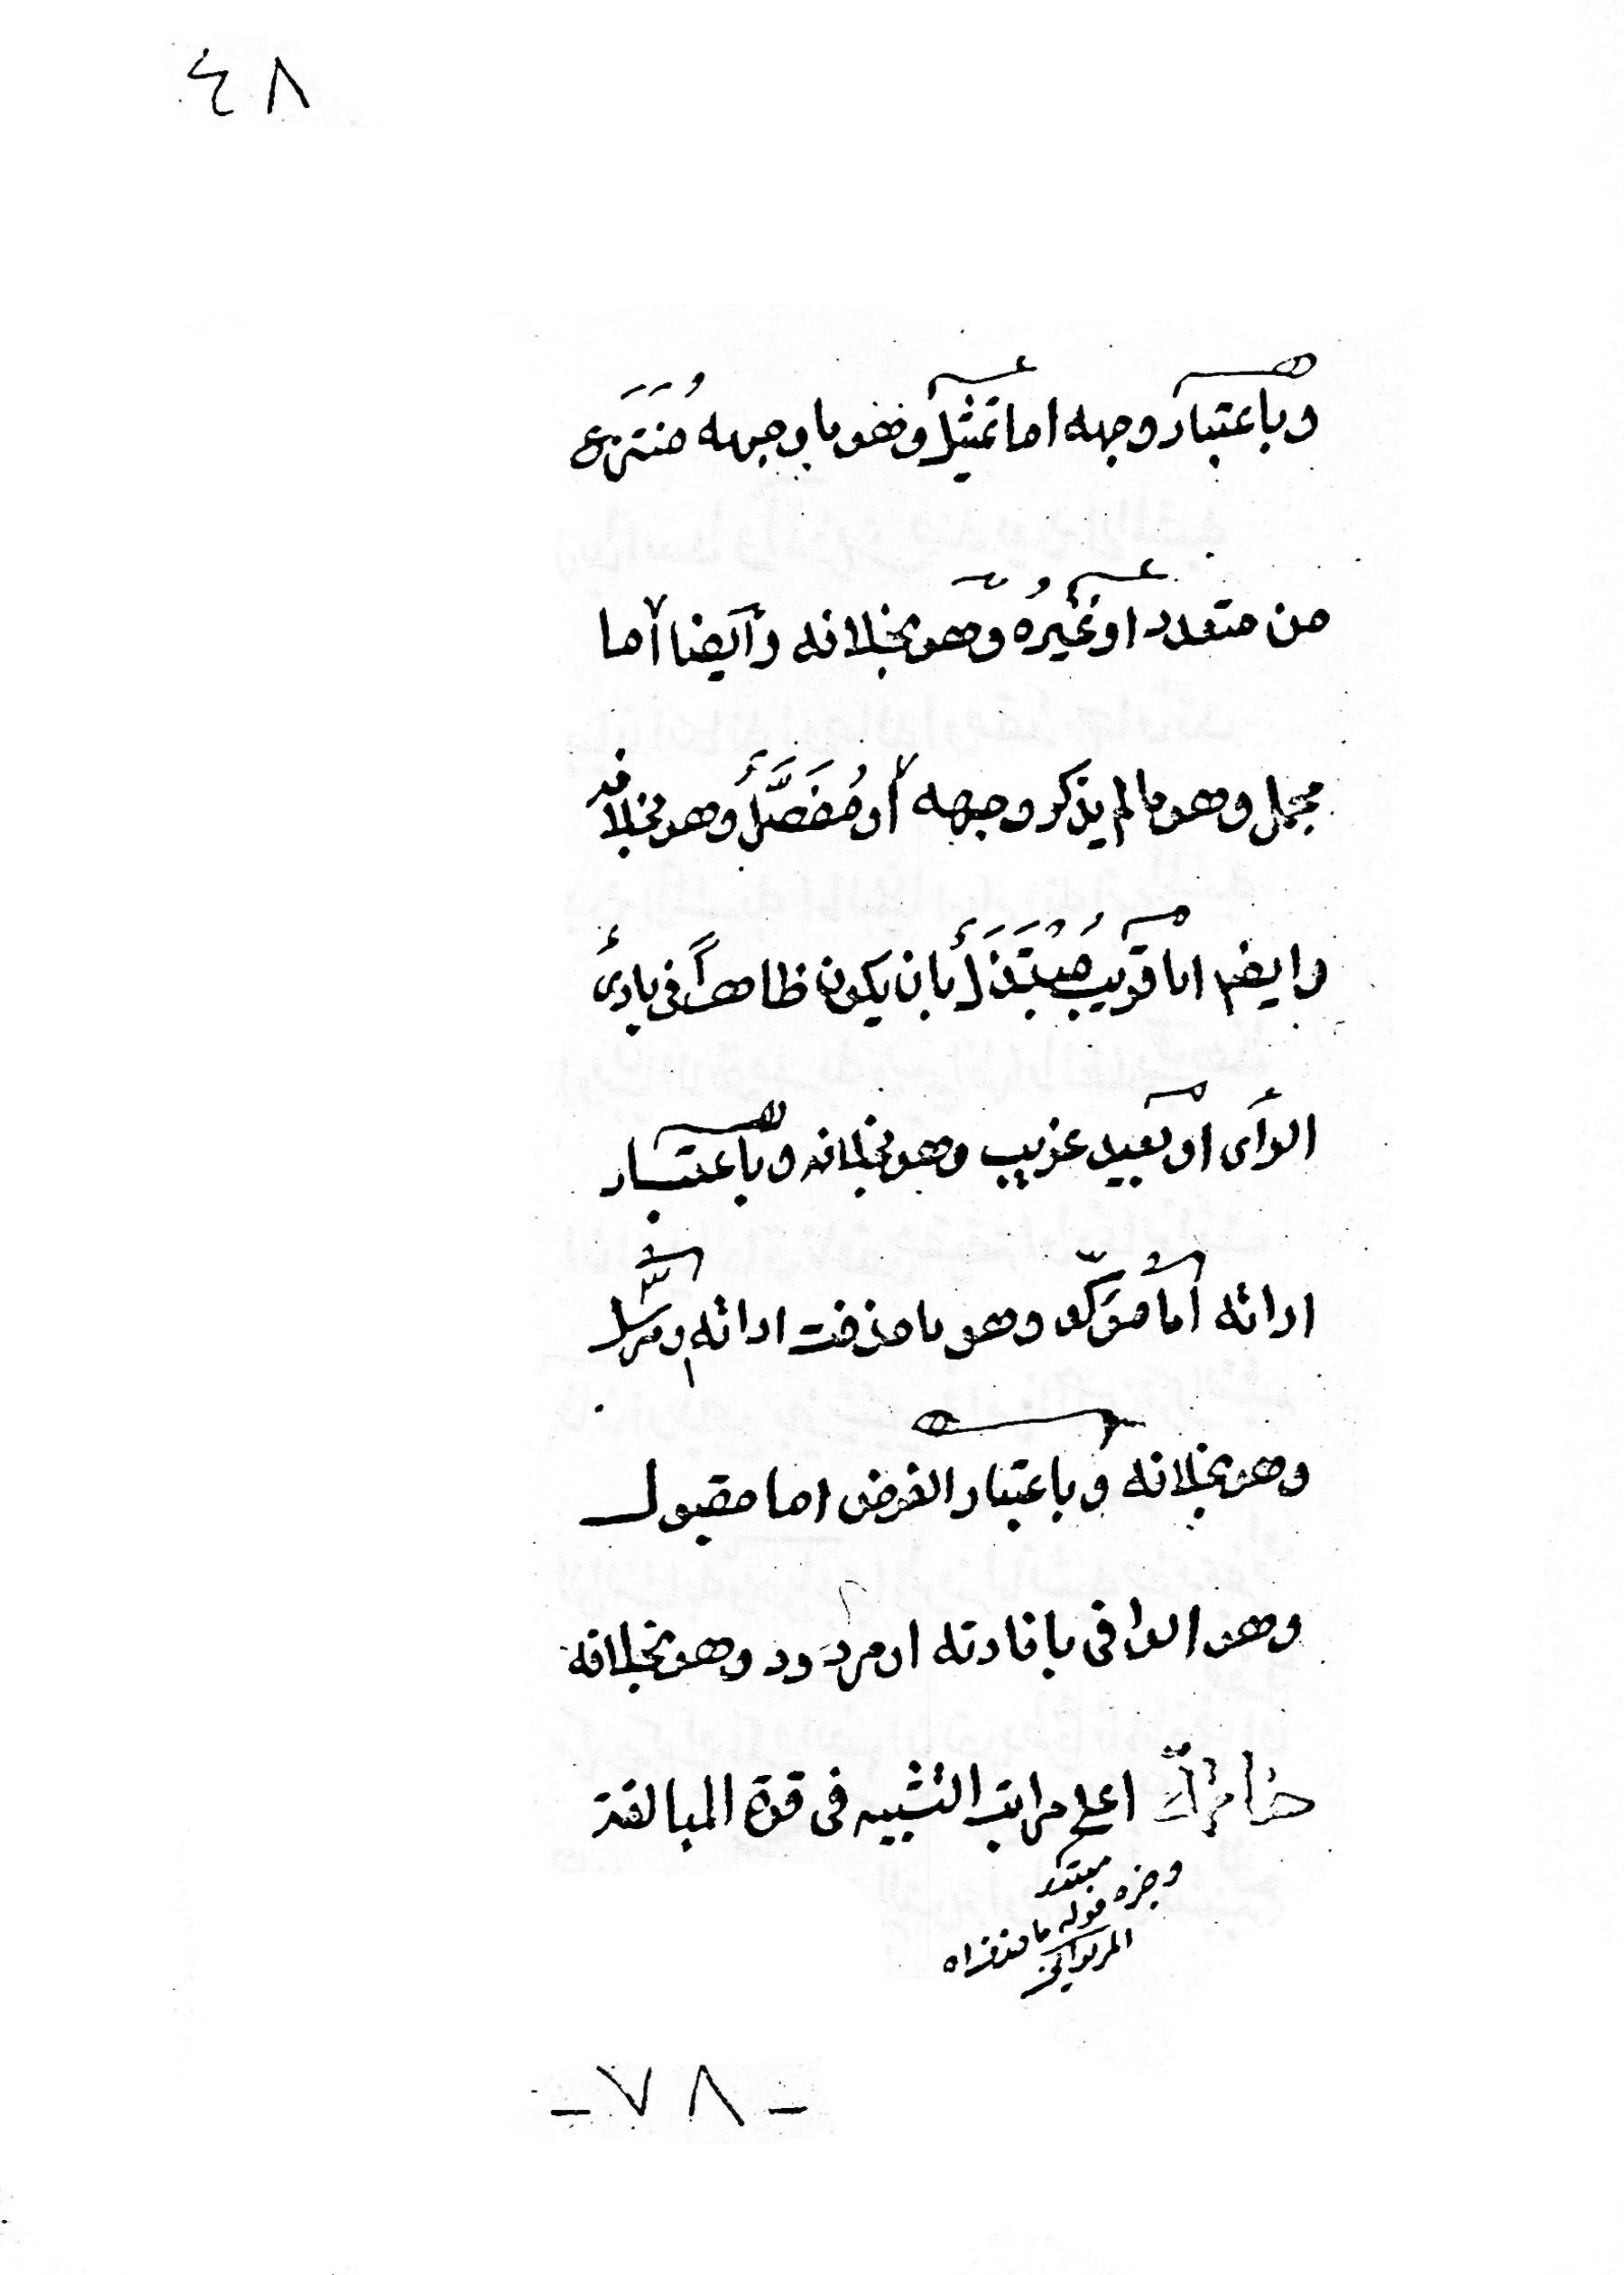 ٤٨
وباعتبار وجهه اما تمثيل وهو ما وجهه مُنتَزَع
من متعدد او غيرُه وهو بخلافه وأيضا أما
مجمل وهو ما لم يذكر وجهه أو مُفَصَّلٌ وهو بخلافه
وايضا اما قريب مُبْتَذَل بان يكون ظاهراً فى بادئ
الرأى او بعيد غريب وهو بخلافه وباعتبار
اداته أما مؤكّد وهو ما حذفت اداته او مرسل
وهو بخلافه وباعتبار الغرض اما مقبول
وهو الوافى بافادته او مردود وهو بخلافه
خاتمة اعلى مراتب التشبيه فى قوة المبالغة
مبتدء
وخبره قوله ما حذفت اه
٧٨